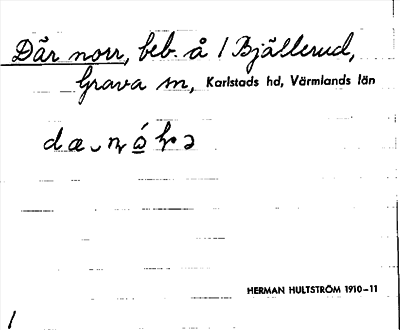 Där norr, beb. å / Bjällerud,
Grava sn, Karlstads hd, Värmlands län
HERMAN HULTSTRÖM 1910-11
/